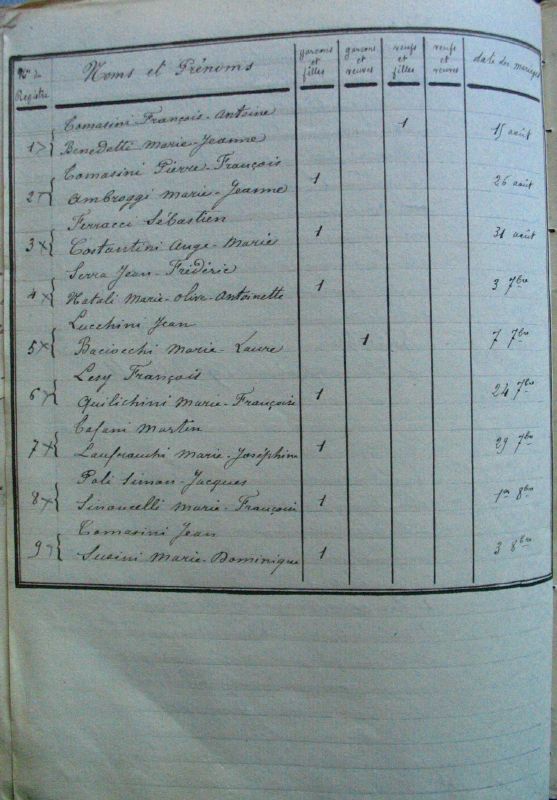 Nos du Registre | Noms et Prénoms | garcons et filles | garcons et veuves | veufs et filles | veufs et veuves | date des mariages
Tomasini François-Antoine
1 { Benedetti Marie-Jeanne | 1 | 15 août
Tomasini Pierre-François
2 { Ambroggi Marie-Jeanne | 1 | 26 août
Ferracci Sébastien
3 { Costantini Ange-Marie | 1 | 31 août
Serra Jean-Frédéric
4 { Natali Marie-Olive-Antoinette | 1 | 3 7bre
Lucchini Jean
5 { Baciocchi Marie-Laure | 1 | 7 7bre
François
6 { Quilichini Marie-Françoise | 1 | 24 7bre
Martin
7 { Lanfranchi Marie-Joséphine | 1 | 29 7bre
Poli Simon-Jacques
8 { Sinoncelli Marie-Françoise | 1 | 1er 8bre
Tomasini Jean
9 { Susini Marie-Dominique | 1 | 3 8bre